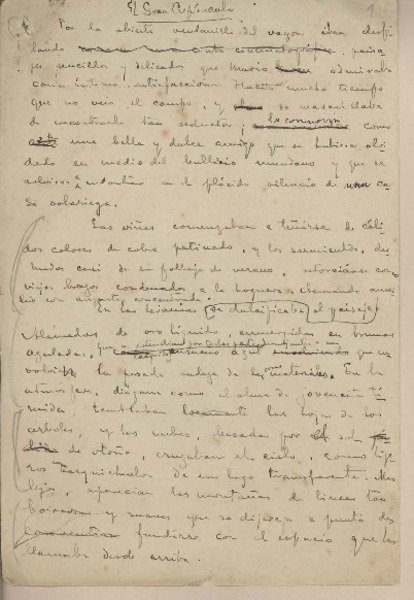 El Gran Crepúsculo 1
Por la abierta ventanilla del vagon iban desfi-
lando como una cinta cinematográfica, paisa-
jes sencillos y delicados que Mario admiraba
con íntima satisfaccion. Hacía mucho tiempo
que no veia el campo, y se maravillaba
de encontrarlo tan seductor; lo como
una bella y dulce amiga que se hubiese olvi-
dado en medio del bullicio mundano y que se
volviese a encontrar en el plácido silencio de una ca-
sa solariega.
Las viñas comenzaban a teñirse de cáli-
dos colores de cobre patinado, y los sarmientos, des-
nudos casi de su follaje de verano, retorcíanse como
viejos brazos condenados a la hoguera
con angustia concentrada.
En las lejanias se dulcificaba el paisaje.
Alamedas de oro líquido, emergidas en brumas
azuladas, que se extendian por todas partes
azul que en-
volviese la pesada de las materiales. En la
atmosfera, diáfana como el alma de jovencita tí-
mida temblaban las hojas de los
arboles, y las nubes, besadas por el sol
de otoño, cruzaban el cielo, como lige-
ros esquifes de un lago transparente. Mas
lejos, aparecian las montañas de lineas tan
borrosas y suaves que se dijeran a punto de
fundirse con el espacio que las
llamaba desde arriba.